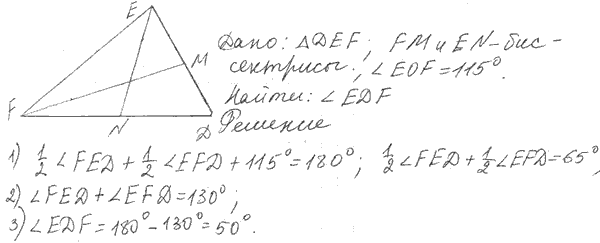 E
M
F
N
D
Дано: △DEF; FM и EN-бис-
сектрисы; ∠EOF=115°.
Найти: ∠EDF
Решение
1) 1/2 ∠FED + 1/2 ∠EFD + 115° = 180°; 1/2 ∠FED + 1/2 ∠EFD = 65°,
2) ∠FED + ∠EFD = 130°;
3) ∠EDF = 180° - 130° = 50°.